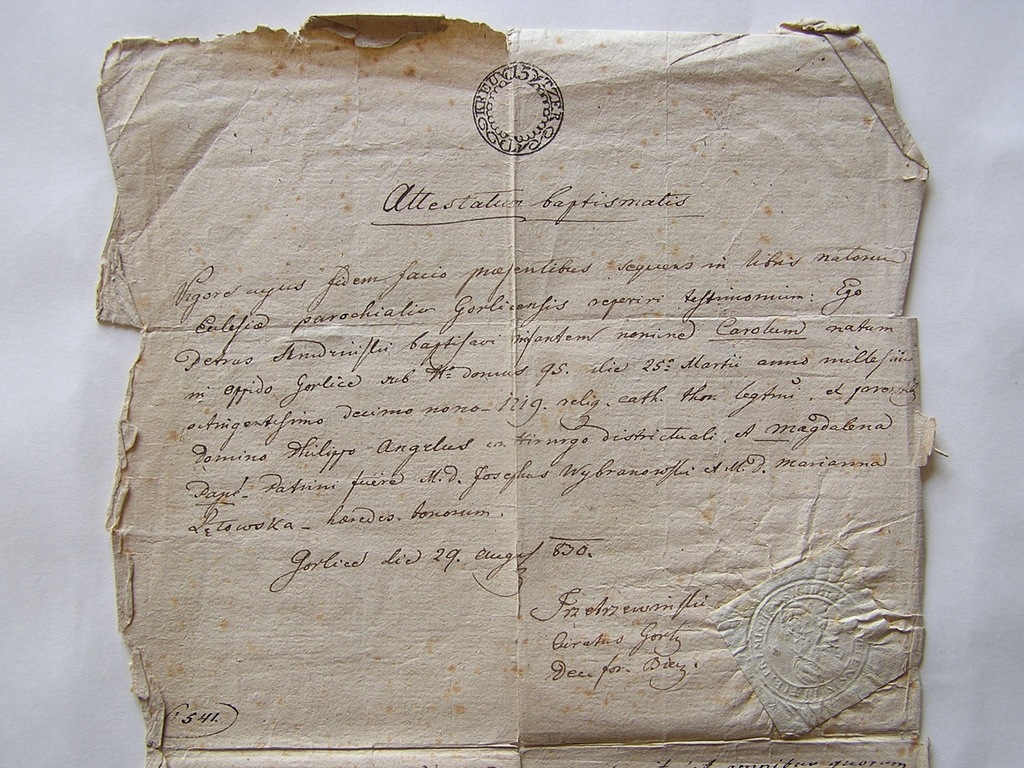 15 KREUTZER
Attestatum baptismatis
Vigore cujus fidem facio præsentibus sequens in libris natorum
Eclesiæ parochialis Gorlicensis reperiri testimonium: Ego
Petrus baptisavi infantem nomine Carolum natum
in oppido Gorlice sub No domus 95. die 25a Martii anno millesimo
octingentesimo decimo nono - 1819. relig. cath. thori legtmi. ex
Domino Philippo Angelus districtuali, et Magdalena
Papé - Patrini fuere M.D. Josephus Wybranowski et M.D. Marianna
Łętowska - hæredes bonorum.
Gorlice die 29. Aug 830.
Trzetrzewiński
Curatus Gorl
Dec for. Biec.
541.
omnibus quorum